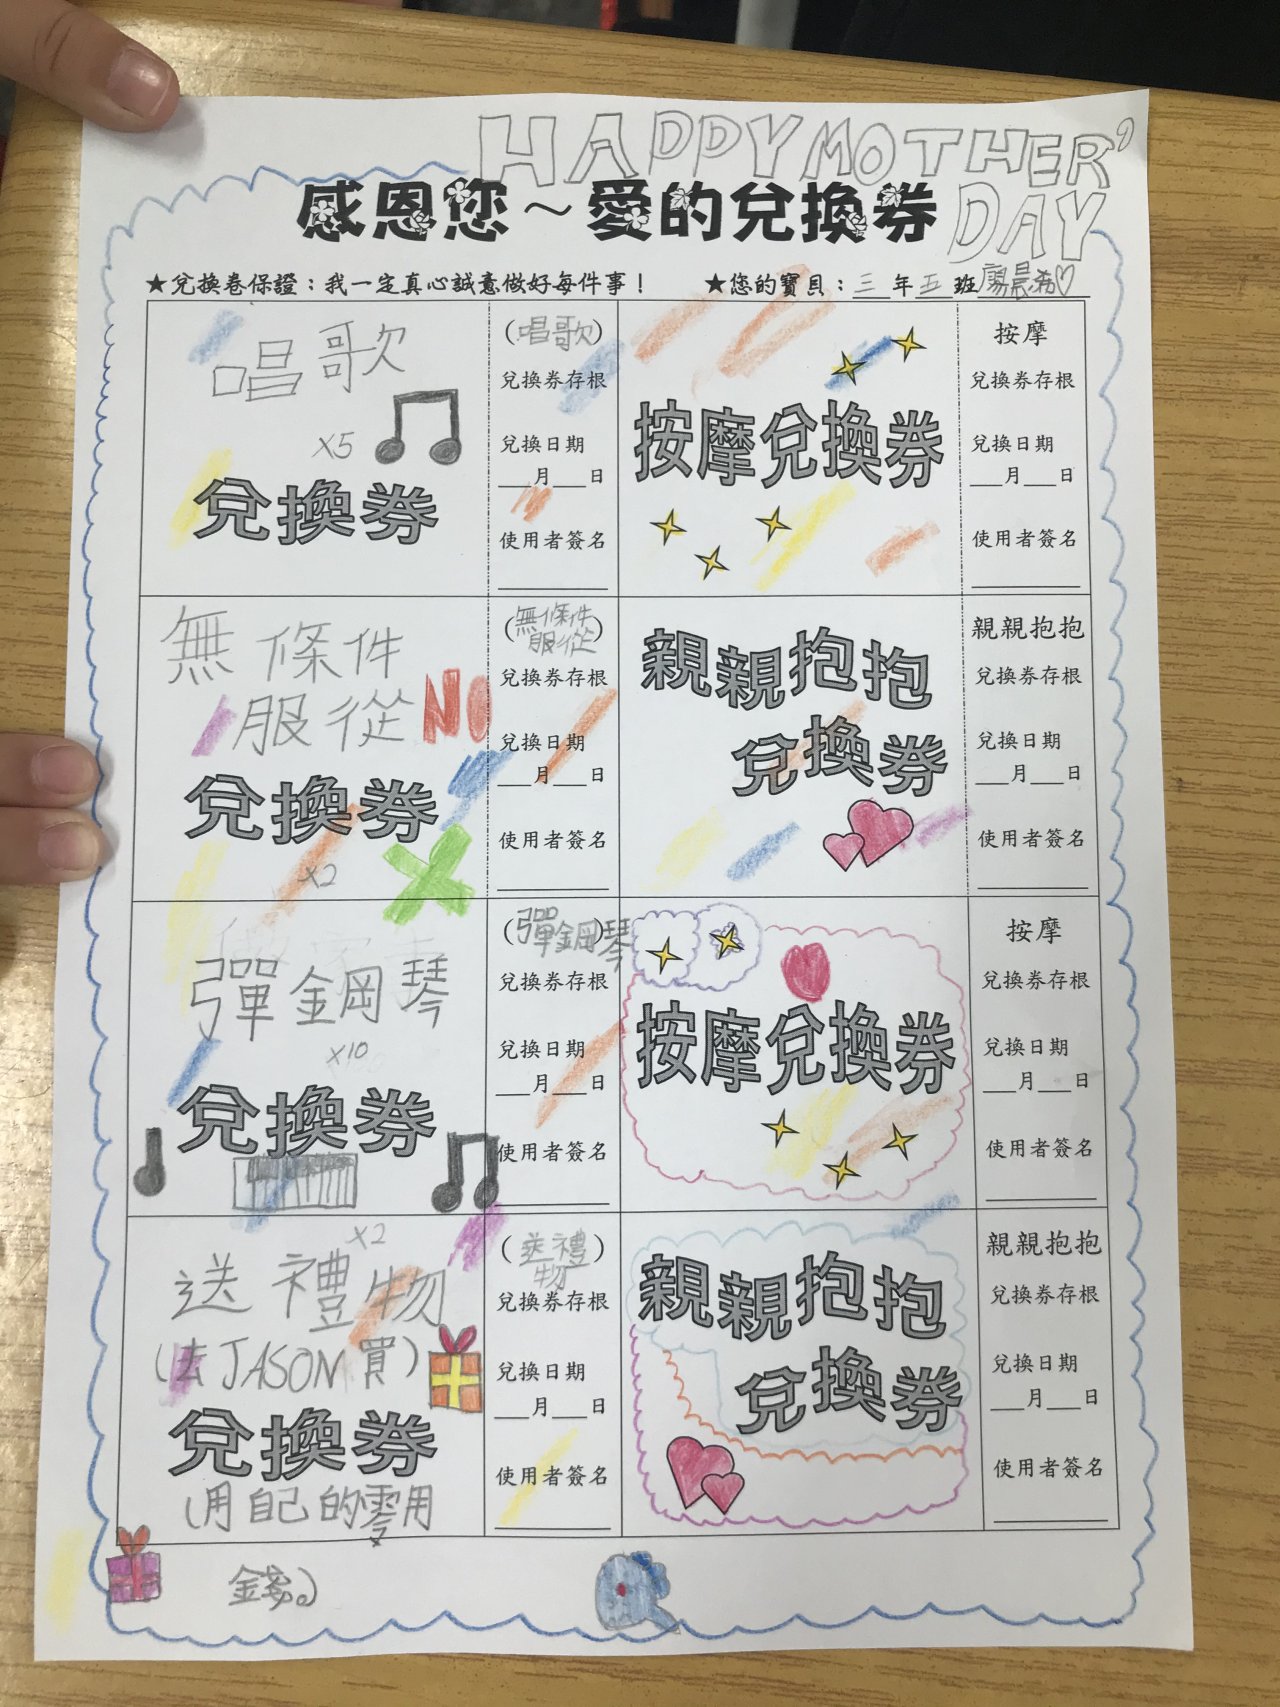 HAPPY MOTHER'
DAY
感恩您～愛的兌換券
★兌換卷保證：我一定真心誠意做好每件事！ ★您的寶貝：三年五班廖晨希♡
唱歌
x5
兌換券
(唱歌)
兌換券存根
兌換日期
___月___日
使用者簽名
按摩兌換券
按摩
兌換券存根
兌換日期
___月___日
使用者簽名
無條件
服從 NO
兌換券
x2
(無條件
服從)
兌換券存根
兌換日期
___月___日
使用者簽名
親親抱抱
兌換券
親親抱抱
兌換券存根
兌換日期
___月___日
使用者簽名
彈鋼琴
x10
兌換券
(彈鋼琴)
兌換券存根
兌換日期
___月___日
使用者簽名
按摩兌換券
按摩
兌換券存根
兌換日期
___月___日
使用者簽名
x2
送禮物
(去JASON買)
兌換券
(用自己的零用
錢。)
(送禮
物)
兌換券存根
兌換日期
___月___日
使用者簽名
親親抱抱
兌換券
親親抱抱
兌換券存根
兌換日期
___月___日
使用者簽名